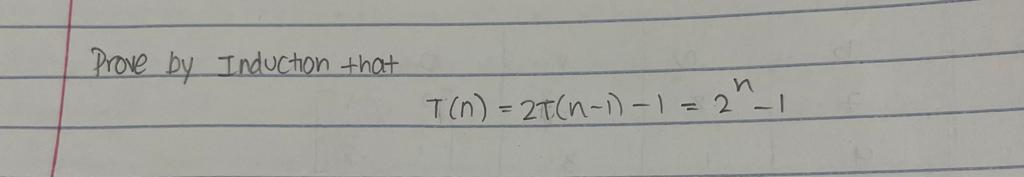 Prove by Induction that
T(n) = 2T(n-1) - 1 = 2^n - 1